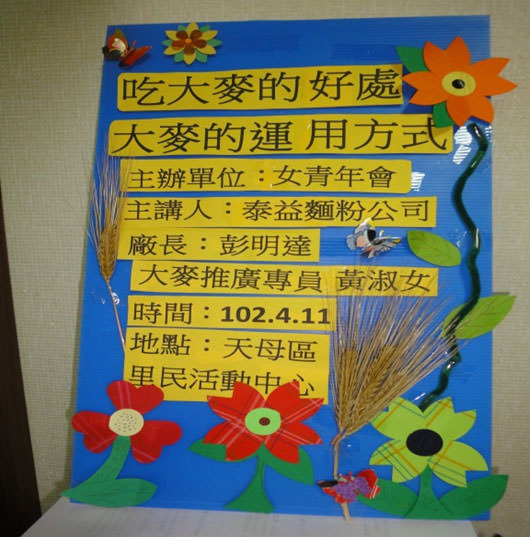 吃大麥的好處
大麥的運用方式
主辦單位：女青年會
主講人：泰益麵粉公司
廠長：彭明達
大麥推廣專員 黃淑女
時間：102.4.11
地點：天母區
里民活動中心